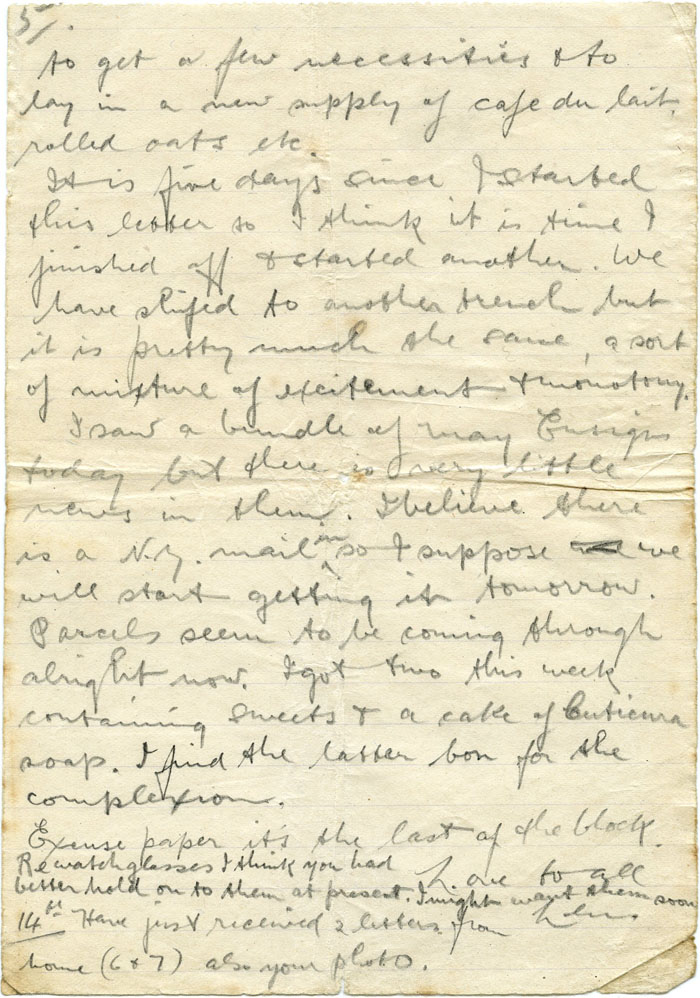 5/.
to get a few necessities & to
lay in a new supply of cafe du lait,
rolled oats etc.
It is five days since I started
this letter so I think it is time I
finished off & started another. We
have shifed to another trench but
it is pretty much the same, a sort
of mixture of excitement & monotony.
I saw a bundle of may Ensigns
today but there is very little
news in them. I believe there
is a N.Z. mail in so I suppose we
will start getting it tomorrow.
Parcels seem to be coming through
alright now. I got two this week
containing sweets & a cake of Cuticura
soap. I find the latter bon for the
complexion.
Excuse paper it's the last of the block.
Love to all
Re watchglasses I think you had
better hold on to them at present. I might want them soon
14th Have just received 2 letters from
home (6 & 7) also your photo.